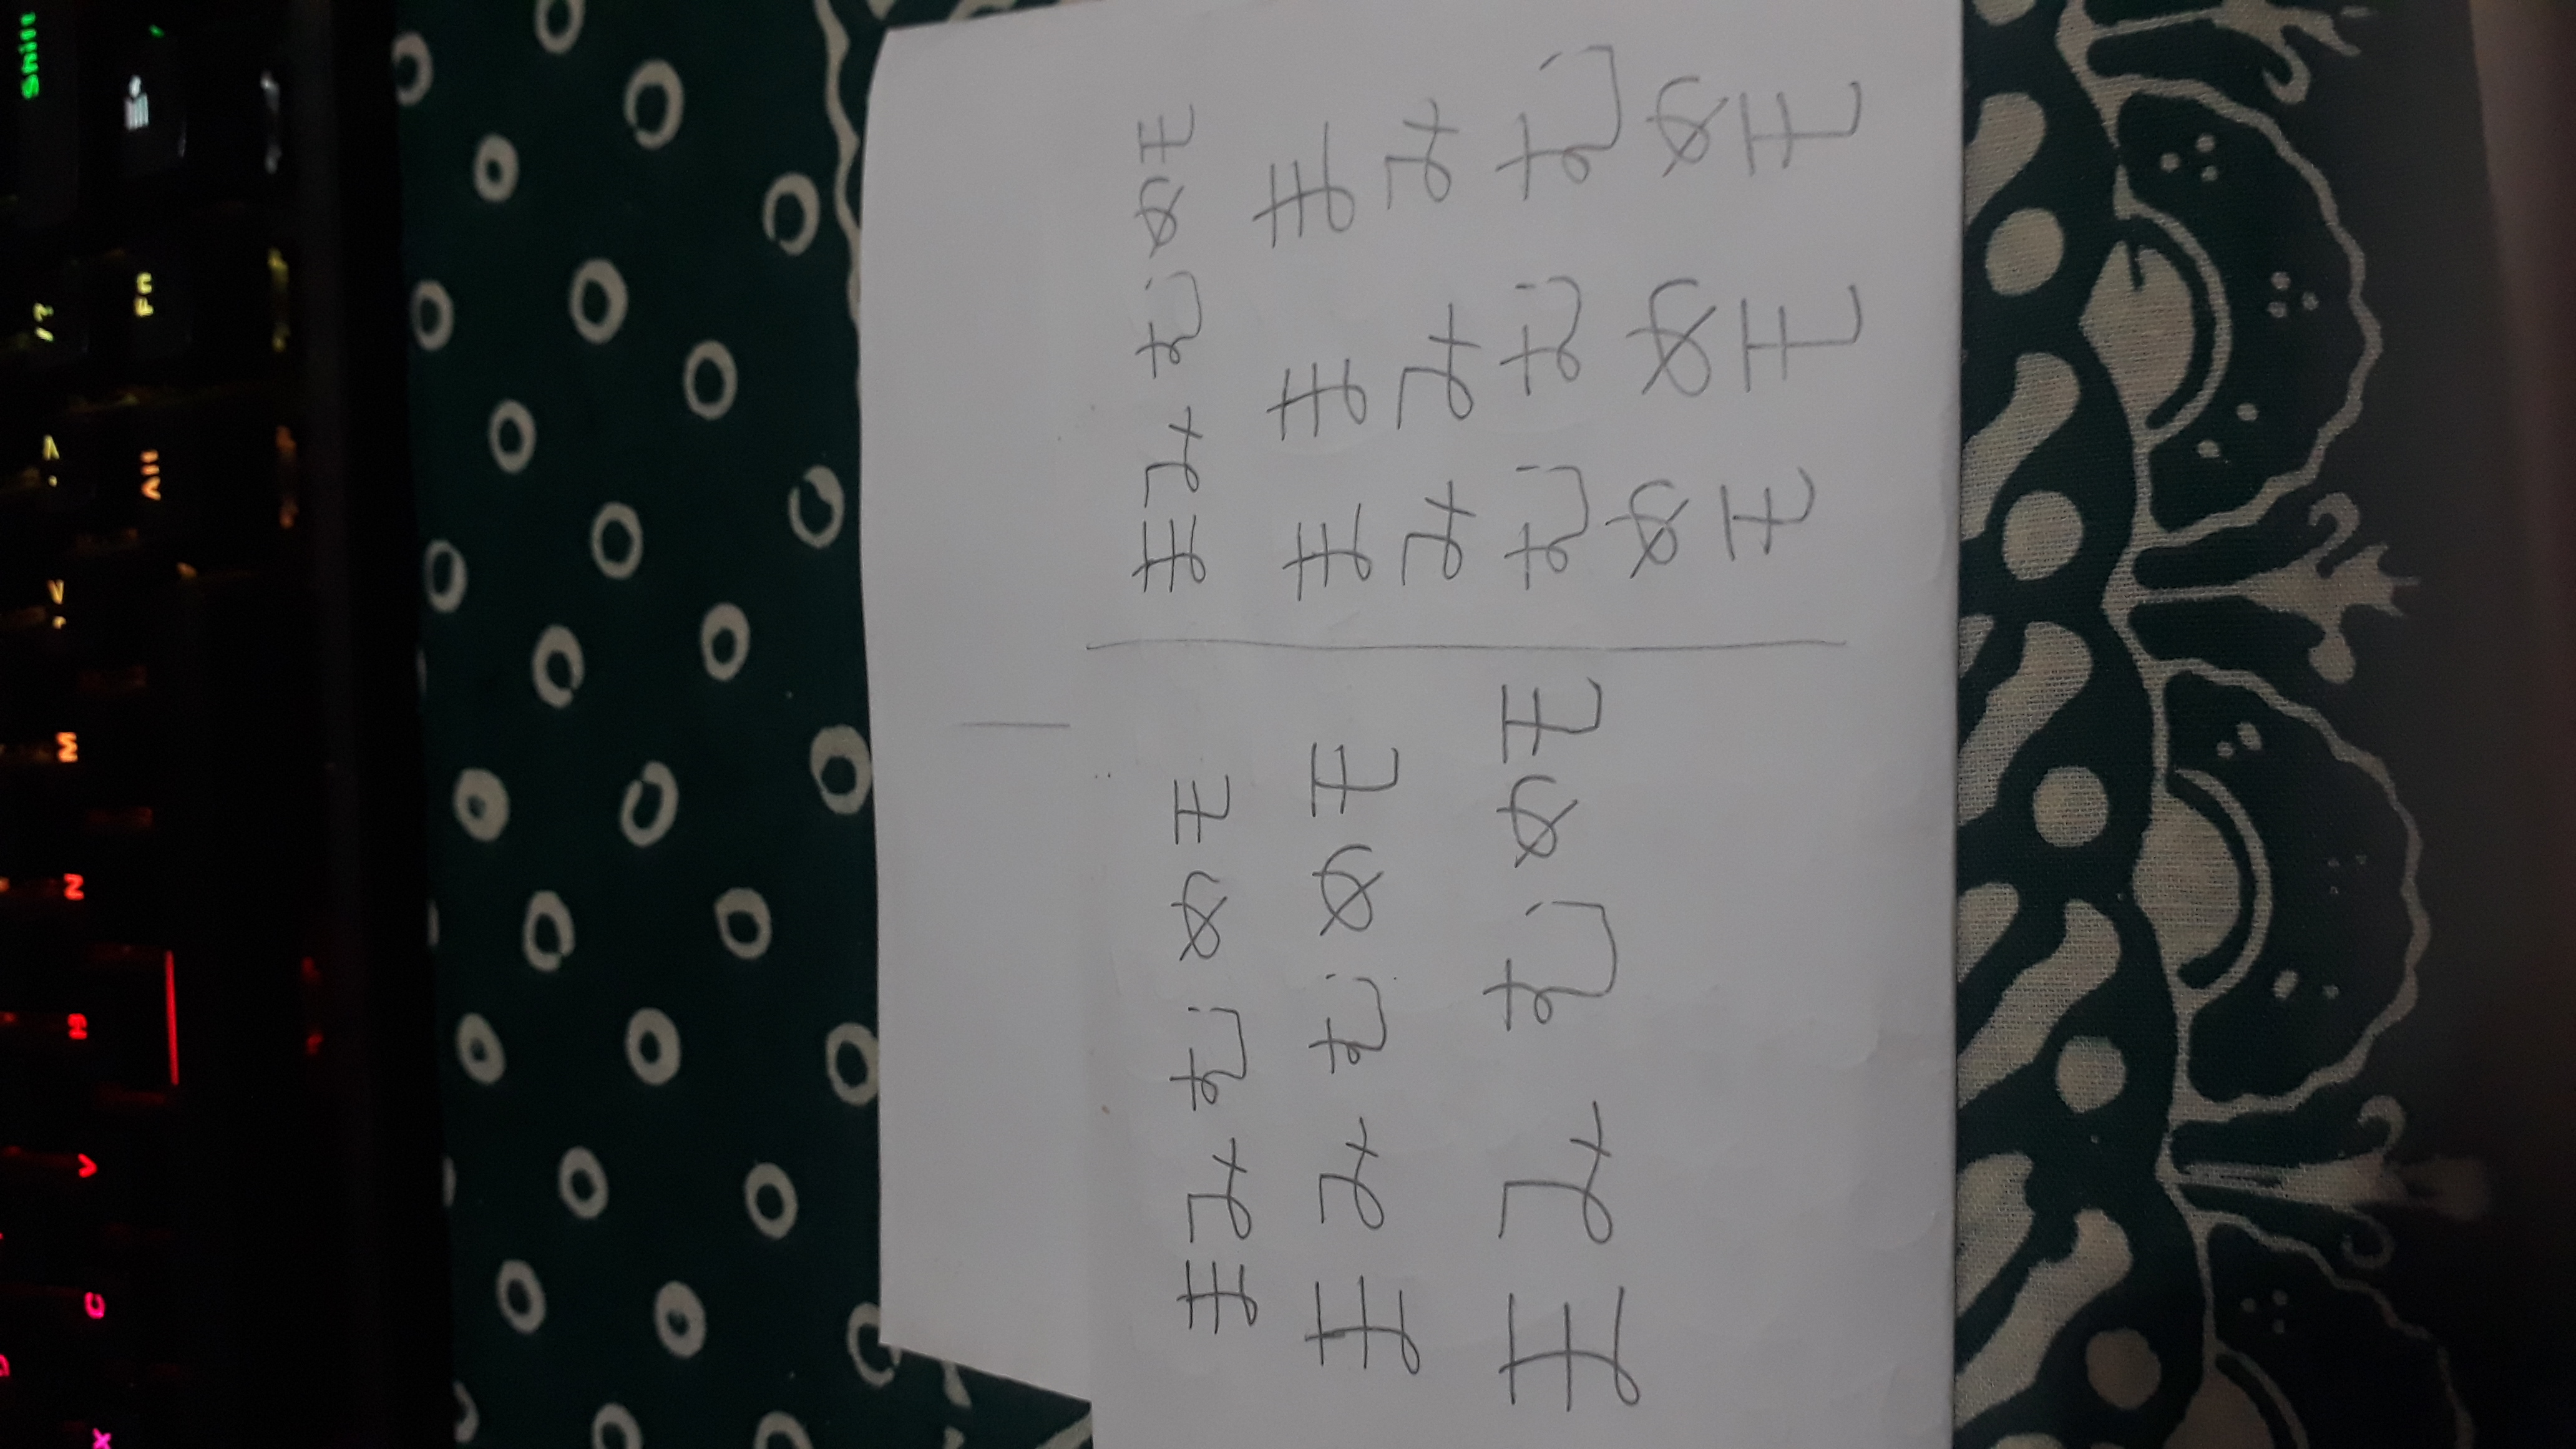 X C V B N M , < . > / ? Shift
Alt Fn
まみむめモ
まみむめモ
まみむめモ
まみむめモ
ま ま ま
み み み
む む む
め め め
モ モ モ